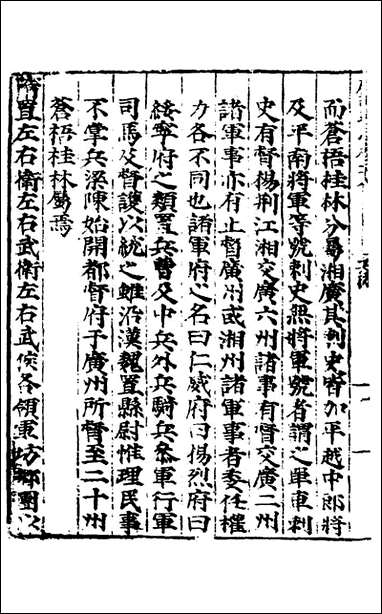 而蒼梧桂林分屬湘廣其刺史皆加平越中郎將
及平南將軍等號刺史無將軍號者謂之單車刺
史有督揚荆江湘交廣六州諸事有督交廣二州
諸軍事亦有止督廣州或湘州諸軍事者委任權
力各不同也諸軍府之名曰仁威府曰惕烈府曰
綏寧府之類置兵曹及中兵外兵騎兵叅軍行軍
司馬及督護以統之雖沿漢魏置縣尉惟理民事
不掌兵梁陳始開都督府于廣州所督至二十州
蒼梧桂林屬焉
隋置左右衛左右武衛左右武侯各領軍坊鄉團以